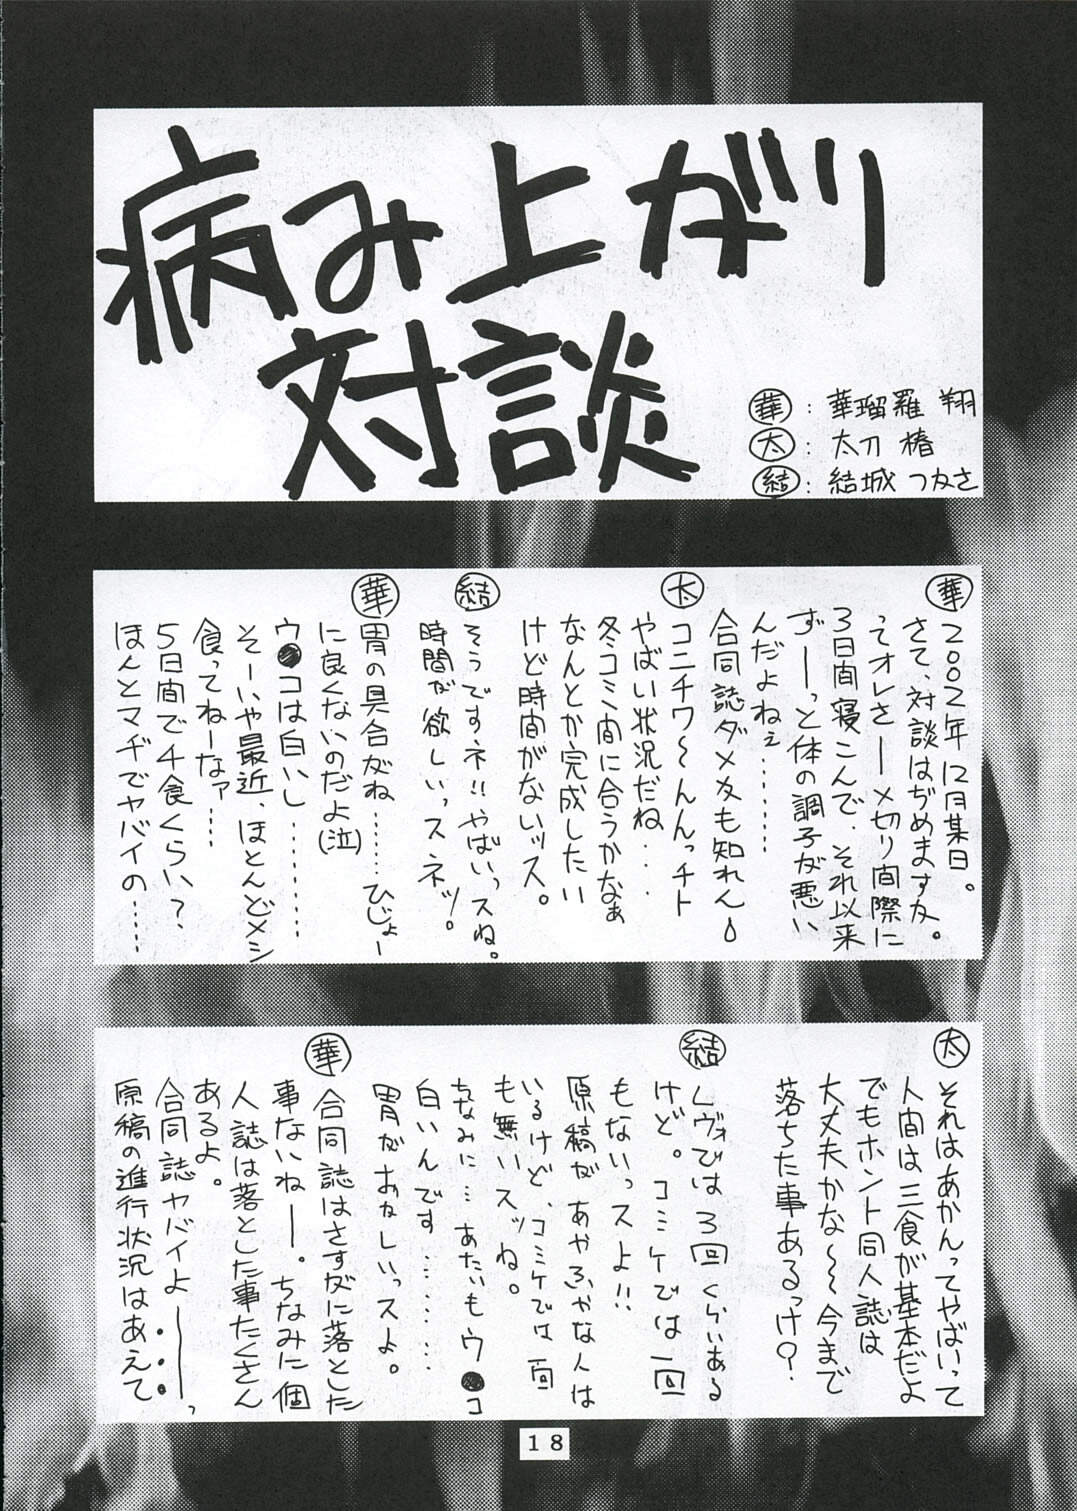 病み上がり
対談
華：華瑠羅 翔
太：太刀 椿
結：結城 つかさ
華
2002年12月某日。
さて、対談はぢめますか。
ってオレさー〆切り間際に
3日間寝こんで、それ以来
ずーっと体の調子が悪い
んだよねぇ……
合同誌ダメかも知れん
太
コニチワ〜んんっチト
やばい状況だね…
冬コミ間に合うかなぁ
なんとか完成したい
けど時間がないッス。
結
そうですネ!!やばいっスね。
時間が欲しいっスネッ。
華
胃の具合がね……ひじょー
に良くないのだよ(泣)
ウ●コは白いし………
そーいや最近、ほとんどメシ
食ってねーなァ……
5日間で4食くらい？
ほんとマヂでヤバイの……
太
それはあかんってやばいって
人間は三食が基本だよ
でもホント同人誌は
大丈夫かな〜〜今まで
落ちた事あるっけ？
結
レヴォでは3回くらいある
けど。コミケでは一回
もないっスよ!!
原稿があやふやな人は
いるけど、コミケでは一回
も無いスッね。
ちなみに…あたいもウ●コ
白いんです………
胃がおかしいっスよ。
華
合同誌はさすがに落とした
事ないねー。ちなみに個
人誌は落とした事たくさん
あるよ。
合同誌ヤバイよ――っ
原稿の進行状況はあえて
18